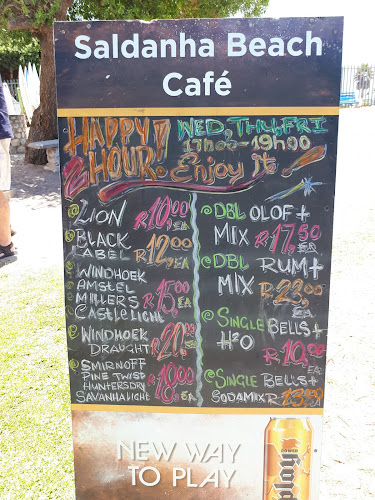 Saldanha Beach
Café
HAPPY HOUR!
WED, THU, FRI
17h00-19h00
Enjoy It!
@ LION R10,00 EA
@ BLACK LABEL R12,00 EA
@ WINDHOEK
AMSTEL
MILLERS R15,00 EA
CASTLE LIGHT
@ WINDHOEK
DRAUGHT R20,00 EA
@ SMIRNOFF
PINE TWIST R18,00 EA
HUNTERS DRY
SAVANHA LIGHT
@ DBL OLOF+
MIX R17,50 EA
@ DBL RUM+
MIX R23,00 EA
@ SINGLE BELLS+
H2O
@ SINGLE BELLS+
SODAMIX
NEW WAY
TO PLAY
POWER